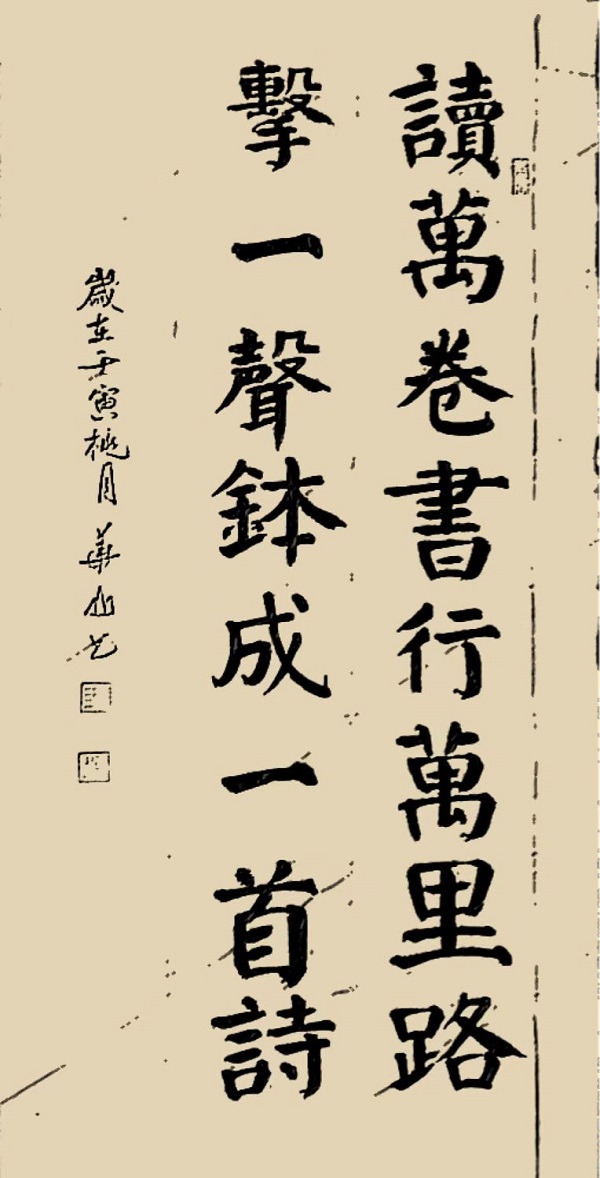 讀萬卷書行萬里路
擊一聲鉢成一首詩
歲在壬寅桃月華山書